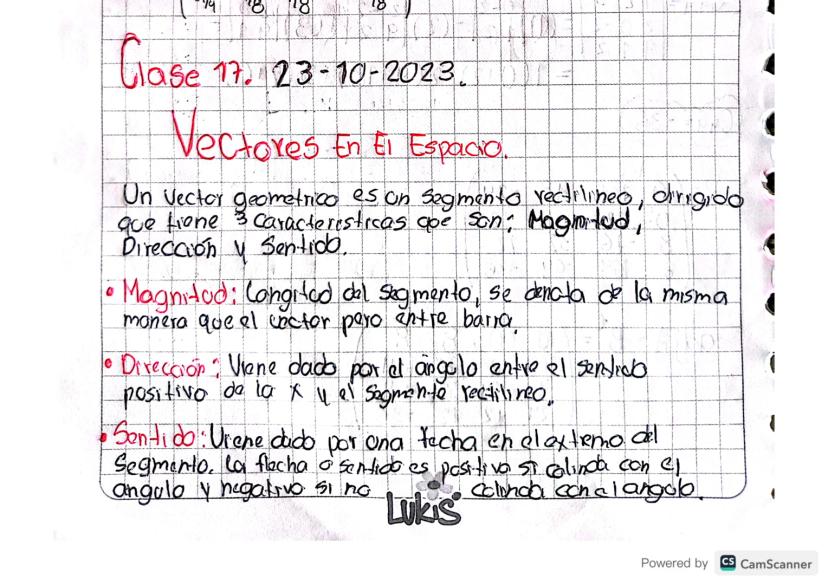 Clase 17. 23-10-2023.
Vectores En El Espacio.
Un vector geometrico es un segmento rectilineo, dirigido
que tiene 3 caracteresticas que son: Magnitud,
Dirección y Sentido.
• Magnitud: Longitud del segmento, se denota de la misma
manera que el vector pero entre barra.
• Dirección: Viene dado por el ángulo entre el sentido
positivo de la x y el segmento rectilineo.
• Sentido: Viene dado por una fecha en el extremo del
Segmento. La flecha o sentido es positivo si colinda con el
angulo y negativo si no colinda con el angulo.
Lukis
Powered by CS CamScanner